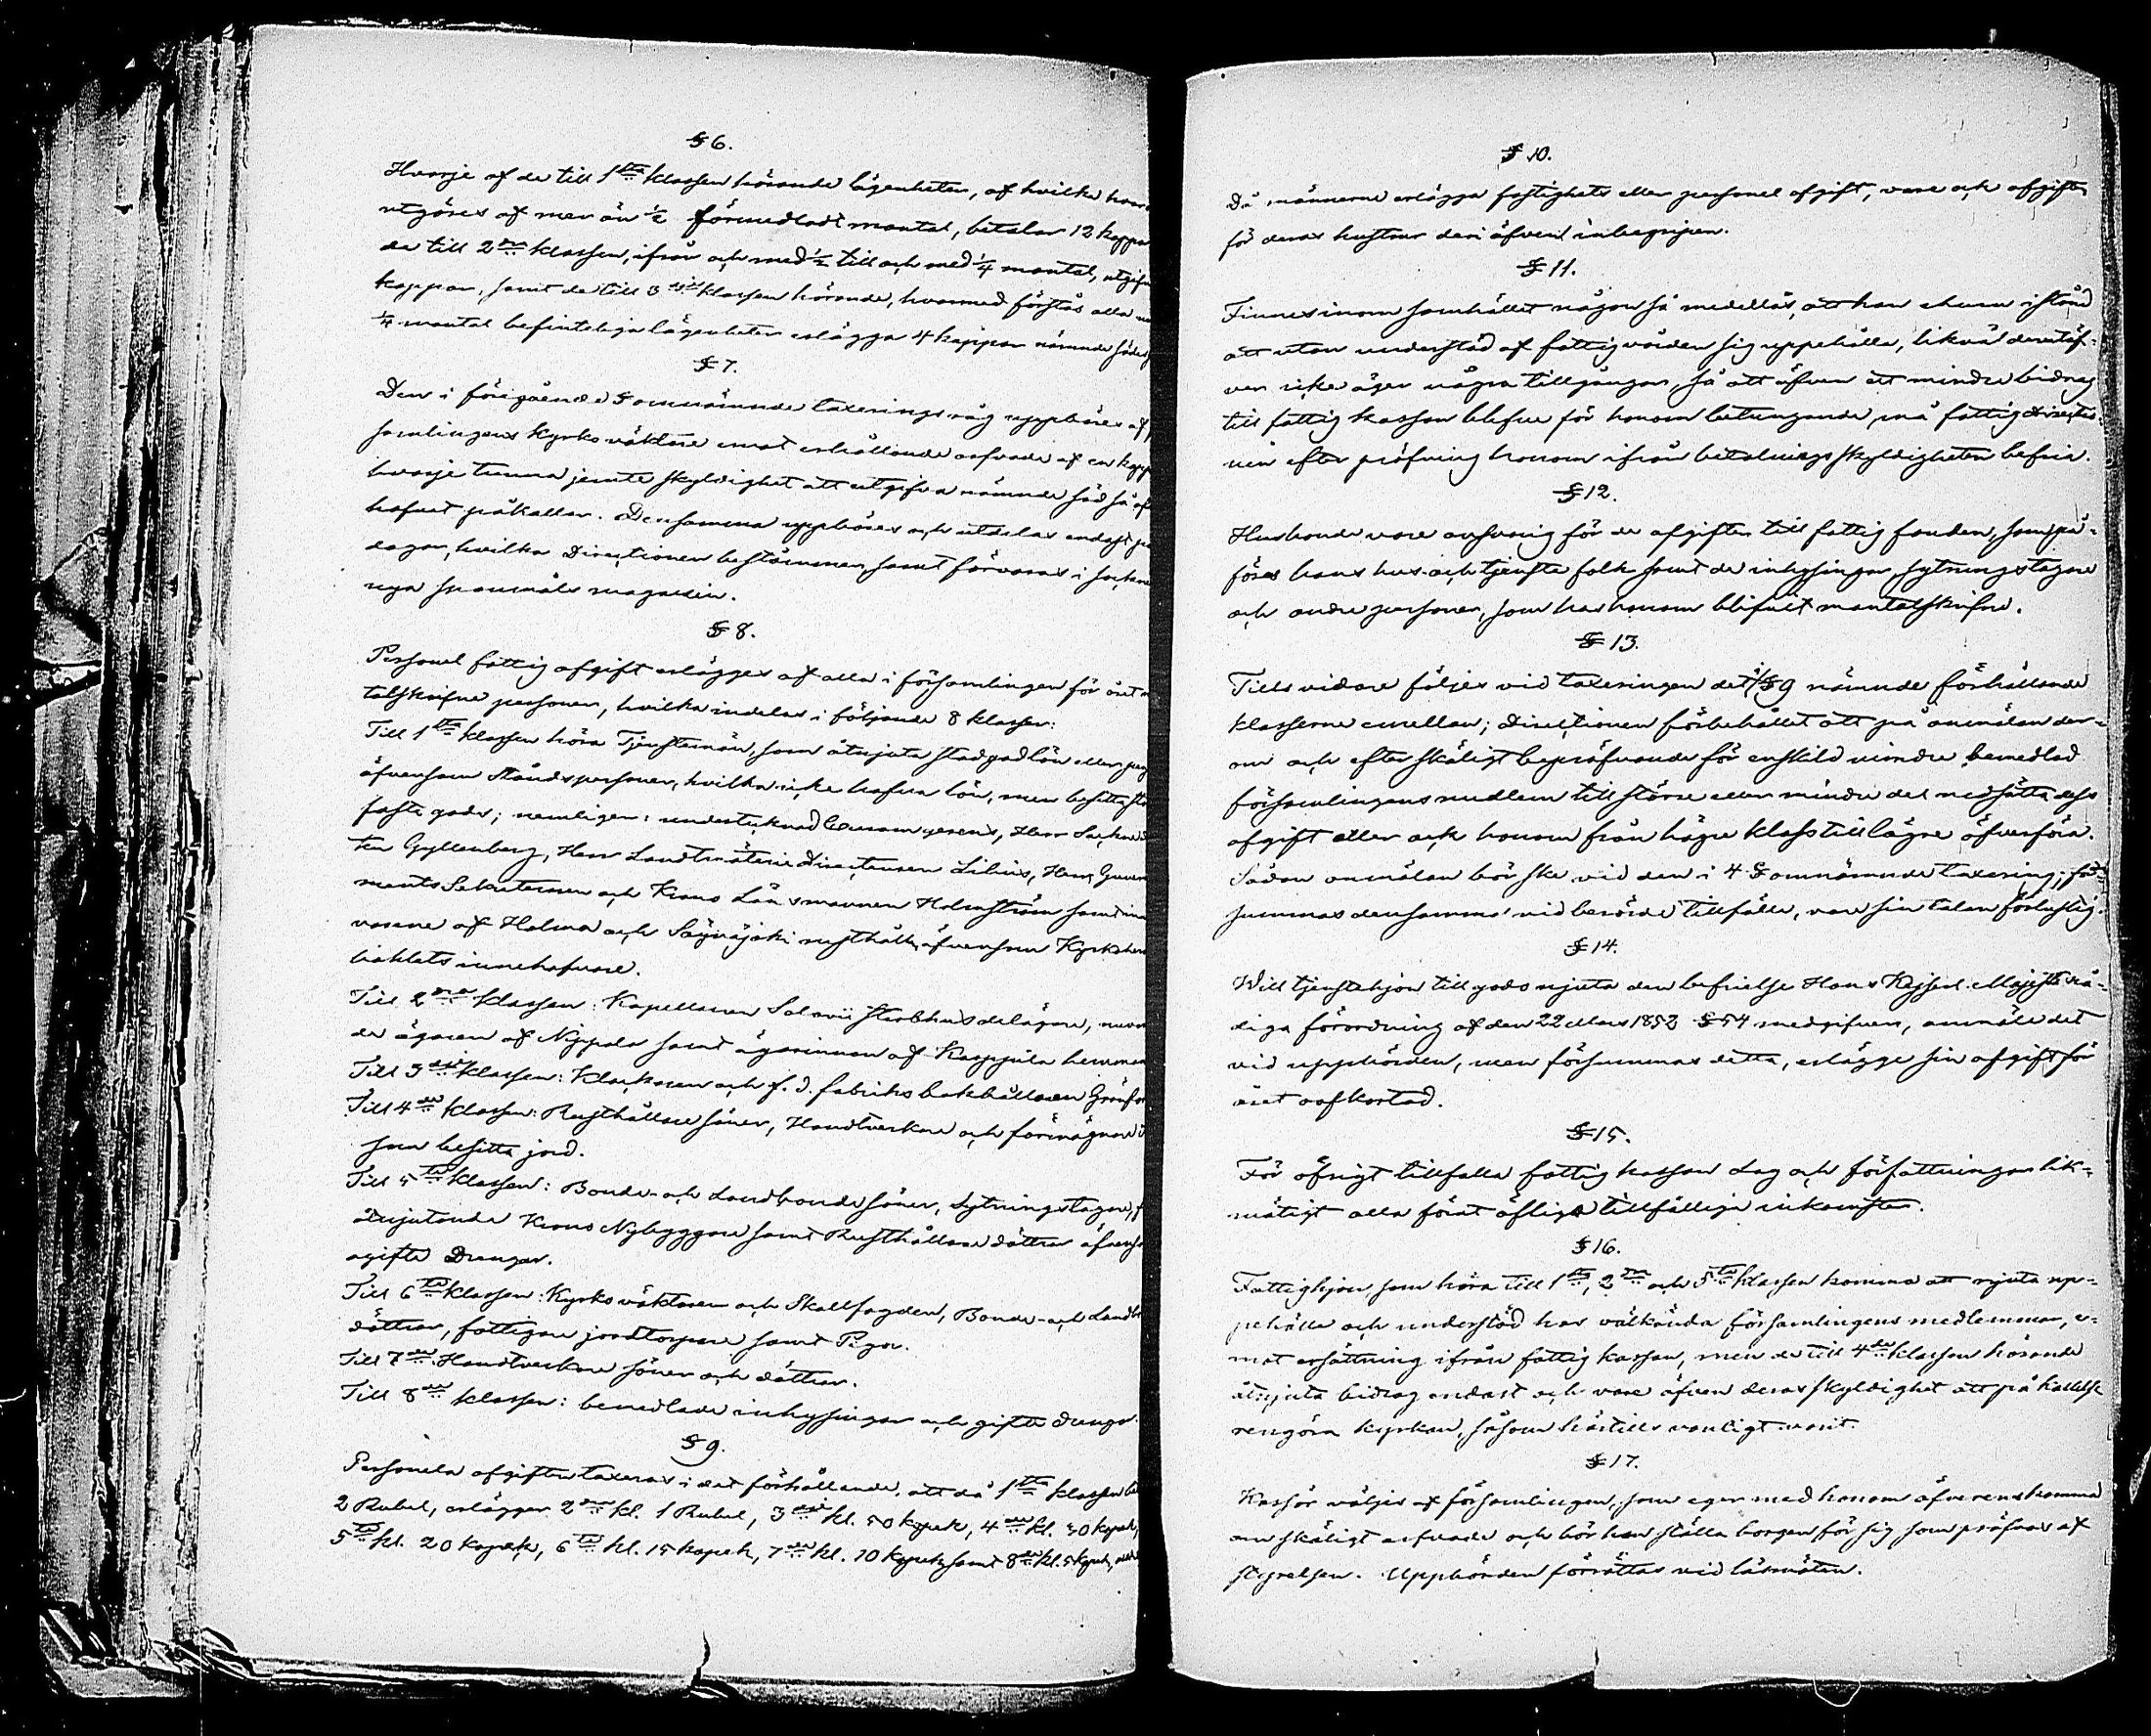 § 6.
Hvarje af de till 1sta klassen hörande lägenheter, af hvilka hvar
utgöres af mer än ½ förmedladt mantal, betalar 12 kappar
de till 2dra klassen, ifrån och med ½ till och med ¼ mantal, utgifv
kappar, samt de till 3dje klassen hörande, hvarmed förstås alla
¼ mantal befinteliga lägenheter erlägga 4 kappar nämnde säd
§ 7.
Den i föregående § omnämnde taxerings råg uppbäres af
samlingens Kyrkoväktare emot erhållande arfvode af en kapp
hvarje tunna jemte skyldighet att utgifva nämnde säd så
hofvet påkallar. Densamma uppbäres och utdelas endast på
dagar, hvilka Directionen bestämmer, samt förvaras i socknens
nya spanmåls magasin.
§ 8.
Personel fattig afgift erlägges af alla i församlingen för året
talskrifne personer, hvilka indelas i följande 8 klasser:
Till 1sta klassen höra Tjenstemän, som åtnjuta stadgad lön eller
äfvensom Ståndspersoner, hvilka icke hafva lön, men besitta
fasta gods; nemligen: undertecknad Censor, Herr
ten Gyllenberg, Herr Landtmäterie Directeuren Lilius, Herr Guver
ments Sekreteraren och Krono Länsmannen Holmström samt inne
varne af Holma och Säynäjoki rusthåll, äfvensom Kyrkoher
bohlets innehafvare.
Till 2dra klassen: Kapellanen Salovii sterbhus delägare,
de ägaren af Nyppola samt ägarinnan af Karppila hemman
Till 3dje klassen: Klockaren och f. d. fabriks bokhållaren Grönfor
Till 4de klassen: Rusthållare söner, Handtverkare och förmögnare
som besitta jord.
Till 5te klassen: Bonde- och Landbonde söner, Sytningstagare,
åtnjutande Krono Nybyggare samt Rusthållare döttrar äfvenso
ogifte Drengar.
Till 6te klassen: Kyrkoväktaren och Skallfogden, Bonde- och Landbo
döttrar, fattigare jordtorpare samt Pigor.
Till 7de Handtverkare söner och döttrar.
Till 8de klassen: bemedlade inhysingar och gifte drengar.
§ 9.
Personela afgiften taxeras i det förhållande, att då 1sta klassen be
2 Rubel, erlägger 2dra kl. 1 Rubel, 3dje kl. 50 kopek, 4de kl. 30 kopek,
5te kl. 20 kopek, 6te kl. 15 kopek, 7de kl. 10 kopek samt 8de kl. 5 kopek,
§ 10.
Då männerne erlägga fastighets eller personel afgift, vare ock afgiften
för deras hustrur deri äfven inbegripen.
§ 11.
Finnes inom samhället någon så medellös, att han ehuru i stånd
att utan understöd af fattigvården sig uppehålla, likväl derutöf-
ver icke äger några tillgångar, så att äfven ett mindre bidrag
till fattig kassan blefve för honom betungande, må fattig directio-
nen efter pröfning honom ifrån betalningsskyldigheten befria.
§ 12.
Husbonde vare ansvarig för de afgifter till fattig fonden, som på-
föras hans hus- och tjenste folk samt de inhysingar, sytningstagare
och andre personer, som hos honom blifvit mantalskrifne.
§ 13.
Tills vidare följes vid taxeringen det i § 9 nämnde förhållande
klasserne emellan; Directionen förbehållet att på anmälan der-
om och efter skäligt bepröfvande för enskild mindre bemedlad
församlingens medlem till större eller mindre del nedsätta dess
afgift eller ock honom från högre klass till lägre öfverföra.
Sådan anmälan bör ske vid den i 4 § omnämnde taxering; för-
summas densamma vid berörde tillfälle, vare sin talan förlustig.
§ 14.
Will tjenstehjon till godo njuta den befrielse Hans Kejserl. Majest:s Nå-
diga förordning af den 22 Mars 1852 § 54 medgifven, anmäle det
vid uppbörden, men försummas detta, erlägge sin afgift för
året oafkortad.
§ 15.
För öfrigt tillfalla fattig kassan Lag och författningar lik-
mätigt alla förut öfliga tillfälliga inkomster.
§ 16.
Fattighjon, som höra till 1sta, 2dra och 3dje klassen komma att njuta up-
pehälle och understöd hos välkända församlingens medlemmar, e-
mot ersättning ifrån fattig kassan, men de till 4de klassen hörande
åtnjuta bidrag endast och vare äfven deras skyldighet att på kallelse
rengöra kyrkan, såsom härtills vanligt varit.
§ 17.
Kassör väljes af församlingen, som eger med honom öfverenskomma
om skäligt arfvode och bör han ställa borgen för sig som pröfvas af
styrelsen. Uppbörden förrättas vid läsmöten.